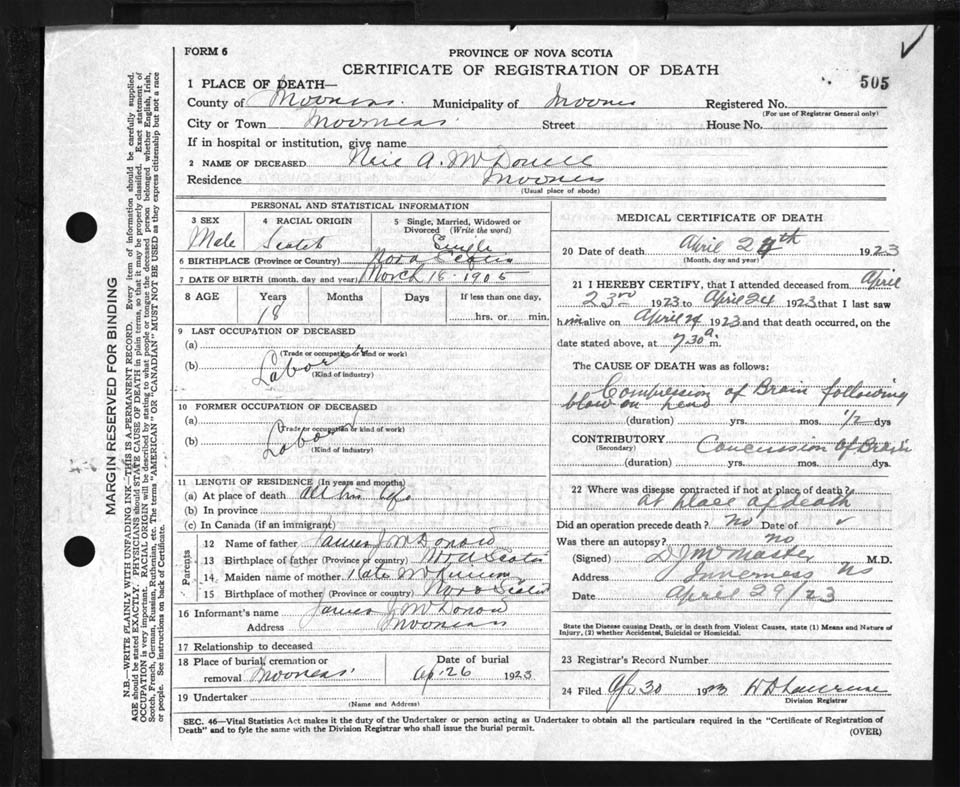 FORM 6
PROVINCE OF NOVA SCOTIA
CERTIFICATE OF REGISTRATION OF DEATH
505
1 PLACE OF DEATH—
County of Municipality of Registered No.
(For use of Registrar General only)
City or Town Street House No.
If in hospital or institution, give name
2 NAME OF DECEASED Neil A.
Residence
(Usual place of abode)
MARGIN RESERVED FOR BINDING
N.B.—WRITE PLAINLY WITH UNFADING INK—THIS IS A PERMANENT RECORD. Every item of information should be carefully supplied.
AGE should be stated EXACTLY. PHYSICIANS should STATE CAUSE OF DEATH in plain terms, so that it may be properly classified. Exact statement of
OCCUPATION is very important. RACIAL ORIGIN will be described by stating to what people or tongue the deceased person belonged whether English, Irish,
Scotch, French, German, Russian, Ruthenian, etc. The terms "AMERICAN" OR "CANADIAN" MUST NOT BE USED as they express citizenship but not a race
or people. See instructions on back of Certificate.
PERSONAL AND STATISTICAL INFORMATION
3 SEX 4 RACIAL ORIGIN 5 Single, Married, Widowed or
Divorced (Write the word)
Male Scotch Single
6 BIRTHPLACE (Province or Country) Nova Scotia
7 DATE OF BIRTH (month, day and year) March 18 - 1905
8 AGE Years Months Days If less than one day,
18 hrs. or min.
9 LAST OCCUPATION OF DECEASED
(a)
(Trade or occupation or kind or work)
(b) Laborer
(Kind of industry)
10 FORMER OCCUPATION OF DECEASED
(a)
(Trade or occupation or kind of work)
(b)
(Kind of industry)
11 LENGTH OF RESIDENCE (In years and months)
(a) At place of death all his life
(b) In province
(c) In Canada (if an immigrant)
Parents
12 Name of father James J
13 Birthplace of father (Province or country) Nova Scotia
14 Maiden name of mother Kate
15 Birthplace of mother (Province or country) Nova Scotia
16 Informant's name James J
Address
17 Relationship to deceased
18 Place of burial, cremation or Date of burial
removal Ap 26 1923
19 Undertaker
(Name and Address)
MEDICAL CERTIFICATE OF DEATH
20 Date of death April 24th 1923
(Month, day and year)
21 I HEREBY CERTIFY, that I attended deceased from April
23rd 1923 to April 24 1923 that I last saw
him alive on April 24 1923 and that death occurred, on the
date stated above, at 7.30 a m.
The CAUSE OF DEATH was as follows:
Compression of Brain following
blow on head
(duration) yrs. mos. 1/2 dys
CONTRIBUTORY Concussion of Brain
(Secondary)
(duration) yrs. mos. dys.
22 Where was disease contracted if not at place of death?
at place of death
Did an operation precede death? no Date of
Was there an autopsy? no
(Signed) D J McMaster M.D.
Address Inverness NS
Date April 29/23
State the Disease causing Death, or in death from Violent Causes, state (1) Means and Nature of
Injury, (2) whether Accidental, Suicidal or Homicidal.
23 Registrar's Record Number
24 Filed Ap 30 1923
Division Registrar
SEC. 46—Vital Statistics Act makes it the duty of the Undertaker or person acting as Undertaker to obtain all the particulars required in the "Certificate of Registration of
Death" and to fyle the same with the Division Registrar who shall issue the burial permit.
(OVER)